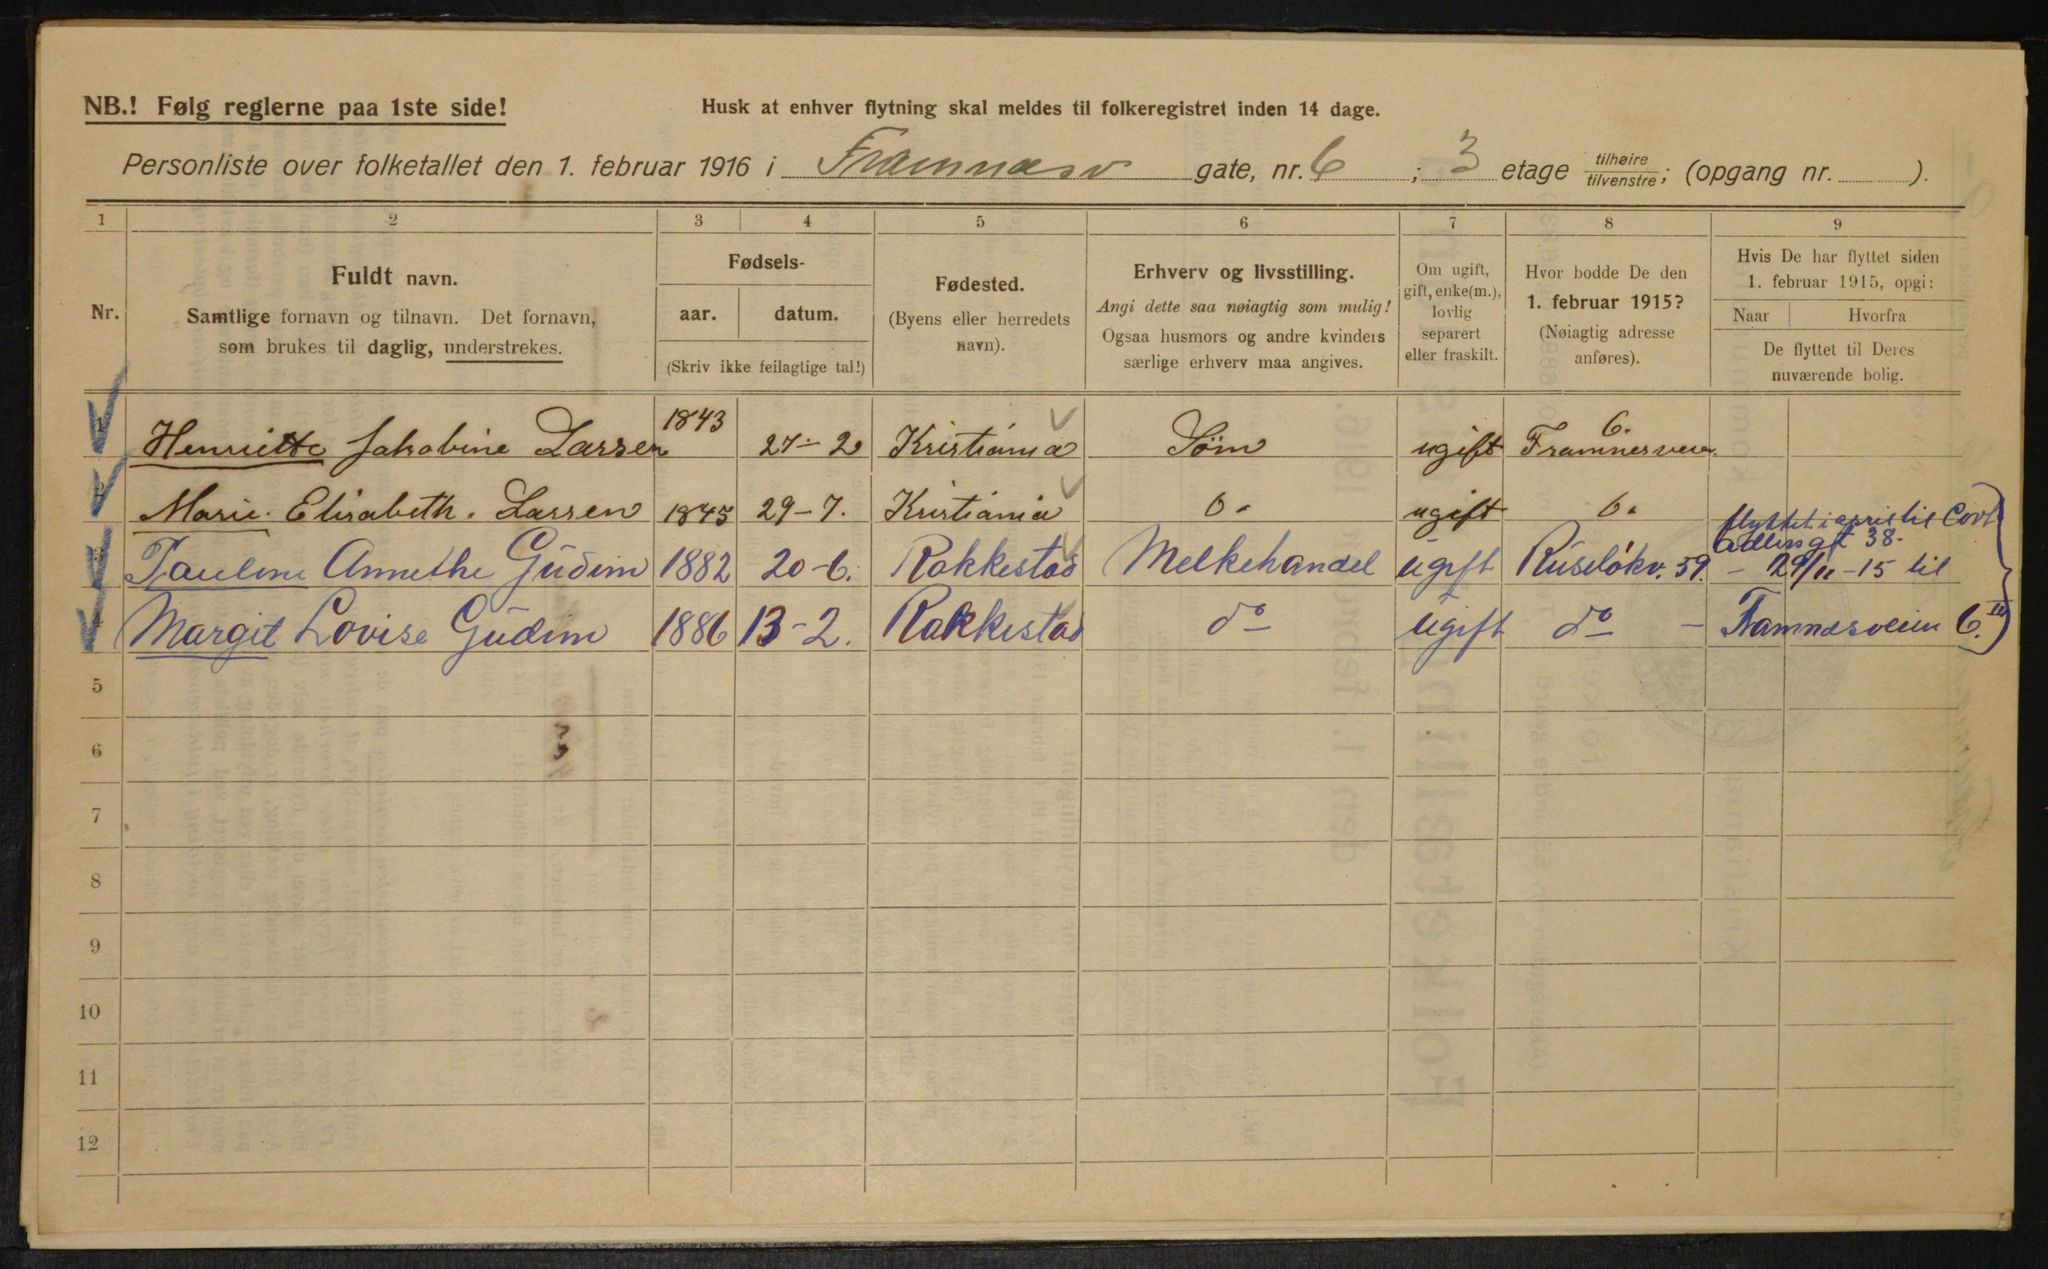 NB.! Følg reglerne paa 1ste side!
Husk at enhver flytning skal meldes til folkeregistret inden 14 dage.
Personliste over folketallet den 1. februar 1916 i Framnæsv gate, nr. 6 ; 3 etage tilhøire/tilvenstre; (opgang nr. ).
1 2 3 4 5 6 7 8 9
Nr.
Fuldt navn.
Samtlige fornavn og tilnavn. Det fornavn,
som brukes til daglig, understrekes.
Fødsels-
aar. datum.
(Skriv ikke feilagtige tal!)
Fødested.
(Byens eller herredets
navn).
Erhverv og livsstilling.
Angi dette saa nøiagtig som mulig!
Ogsaa husmors og andre kvinders
særlige erhverv maa angives.
Om ugift,
gift, enke(m.),
lovlig
separert
eller fraskilt.
Hvor bodde De den
1. februar 1915?
(Nøiagtig adresse
anføres).
Hvis De har flyttet siden
1. februar 1915, opgi:
Naar Hvorfra
De flyttet til Deres
nuværende bolig.
1 Henriette Jakobine Lassen 1843 27-2 Kristiania Søm ugift Framnesveie 6.
2 Marie Elisabeth Lassen 1845 29-7. Kristiania ugift
flyttet i april til Cort
Adlersgt 38.
3 Pauline Annethe Gudim 1882 20-6. Rakkestad Melkehandel ugift Ruseløkv. 59. - 29/11-15 til
4 Margit Lovise Gudim 1886 13-2. Rakkestad do ugift do - Framnæsveien 6. III
5
6
7
8
9
10
11
12